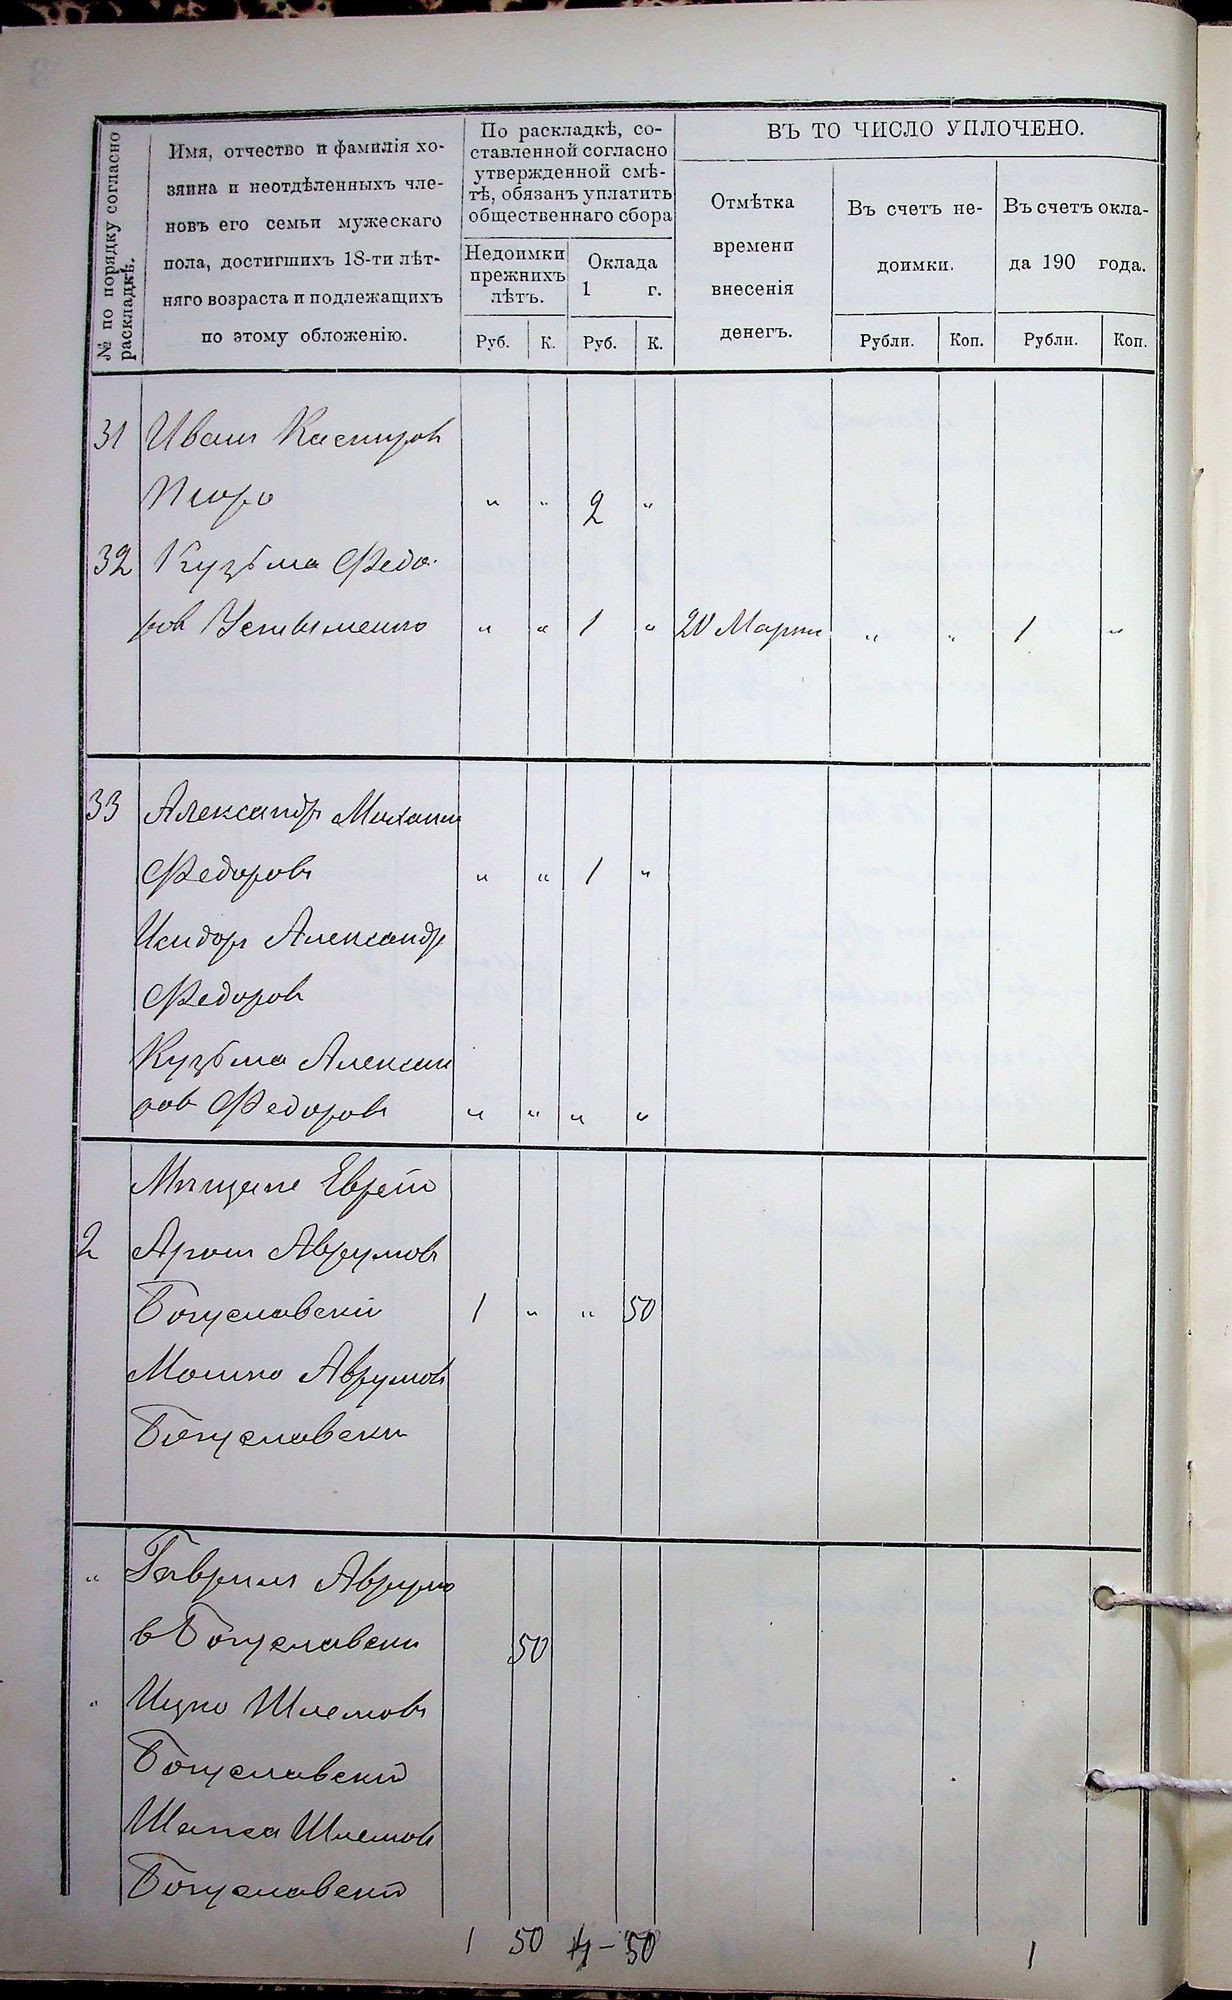 № по порядку согласно
раскладкѣ.
Имя, отчество и фамилія хо-
зяина и неотдѣленныхъ чле-
новъ его семьи мужескаго
пола, достигшихъ 18-ти лѣт-
няго возраста и подлежащихъ
по этому обложенію.
По раскладкѣ, со-
ставленной согласно
утвержденной смѣ-
тѣ, обязанъ уплатить
общественнаго сбора
Недоимки
прежнихъ
лѣтъ.
Оклада
1 г.
Руб. К. Руб. К.
ВЪ ТО ЧИСЛО УПЛОЧЕНО.
Отмѣтка
времени
внесенія
денегъ.
Въ счетъ не-
доимки.
Въ счетъ окла-
да 190 года.
Рубли. Коп. Рубли. Коп.
31 Иванъ
" " 2 "
32 Кузьма Федо-
ровъ Устименко " " 1 " 20 Марта " " 1 "
33 Александр Михаил
Федоровъ " " 1 "
Исидоръ Александр
Федоровъ
Кузьма Алексан
ров Федоровъ " " " "
Мѣщане Евреи
2 Аронъ Аврумовъ
Богуславскій 1 " " 50
Мошко Аврумовъ
Богуславски
" Гавриил Аврумо
в Богуславски 50
" Ицко Шлемовъ
Богуславский
Шапса Шлемовъ
Богуславский
1 50 4-50 1